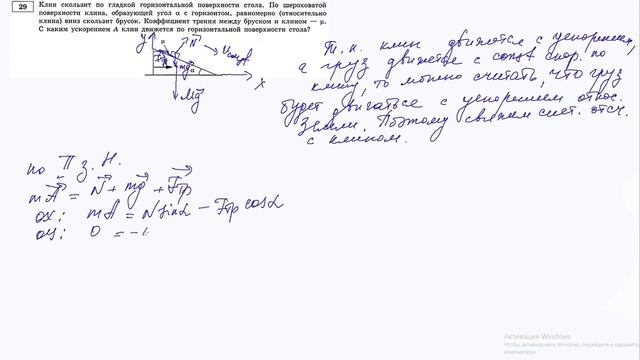 29
Клин скользит по гладкой горизонтальной поверхности стола. По шероховатой
поверхности клина, образующей угол α с горизонтом, равномерно (относительно
клина) вниз скользит брусок. Коэффициент трения между бруском и клином — μ.
С каким ускорением A клин движется по горизонтальной поверхности стола?
y
N
Fтр
mg
α
x
Mg
Т.к. клин движется с ускорением,
а груз движется с const скор. по
клину, то можно считать, что груз
будет двигаться с ускорением относ.
Земли. Поэтому свяжем сист. отсч.
с клином.
по II з. Н.
mA = N + mg + Fтр
ox: mA = N sinα − Fтр cosα
oy: 0 = −
Активация Windows
Чтобы активировать Windows, перейдите к параметрам
компьютера